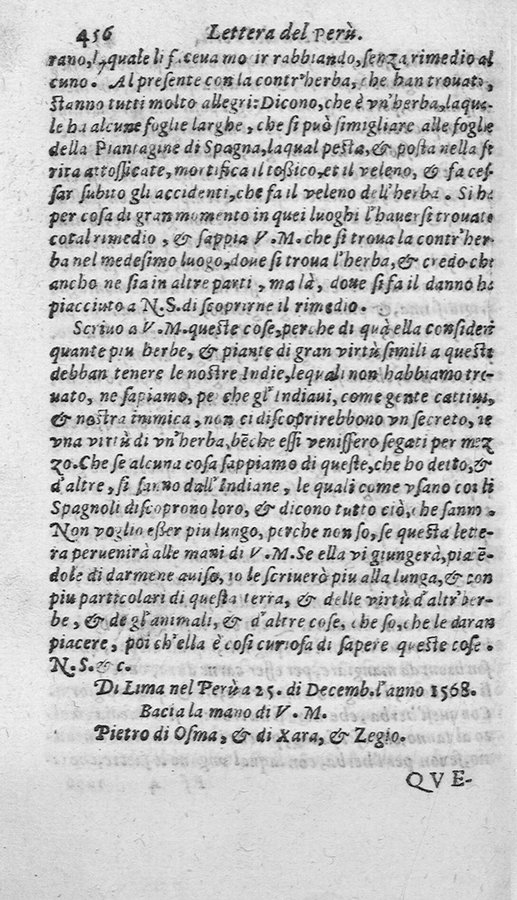 456 Lettera del Perù.
rano, l quale li faceua morir rabbiando, senza rimedio al
cuno. Al presente con la contr'herba, che han trouata,
stanno tutti molto allegri: Dicono, che è vn'herba, laqua-
le ha alcune foglie larghe, che si può simigliare alle foglie
della Piantagine di Spagna, laqual pesta, & posta nella fe
rita attossicata, mortifica il tossico, et il veleno, & fa ces-
sar subito gli accidenti, che fa il veleno dell'herba. Si ha
per cosa di gran momento in quei luoghi l'hauersi trouato
cotal rimedio, & sappia V.M. che si troua la contr'her-
ba nel medesimo luogo, doue si troua l'herba, & credo che
ancho ne sia in altre parti, ma là, doue si fa il danno ha
piacciuto a N.S. di scoprirne il rimedio.
Scriuo a V.M. queste cose, perche di quà ella consideri
quante piu herbe, & piante di gran virtù simili a queste
debban tenere le nostre Indie, lequali non habbiamo tro-
uato, ne sapiamo, perche gl'Indiani, come gente cattiua,
& nostra inimica, non ci discoprirebbono vn secreto, ne
vna virtù di vn'herba, bẽche essi venissero segati per mez
zo. Che se alcuna cosa sappiamo di queste, che ho detto, &
d'altre, si sanno dall'Indiane, le quali come vsano con li
Spagnoli discoprono loro, & dicono tutto ciò, che sanno.
Non voglio esser piu lungo, perche non so, se questa lette-
ra peruenirà alle mani di V.M. Se ella vi giungerà, piacẽ-
dole di darmene auiso, io le scriuerò piu alla lunga, & con
piu particolari di questa terra, & delle virtù d'altr'her-
be, & de gl'animali, & d'altre cose, che so, che le daran
piacere, poi ch'ella è cosi curiosa di sapere queste cose.
N.S. & c.
Di Lima nel Perù a 25. di Decemb. l'anno 1568.
Bacia la mano di V.M.
Pietro di Osma, & di Xara, & Zegio.
QVE-